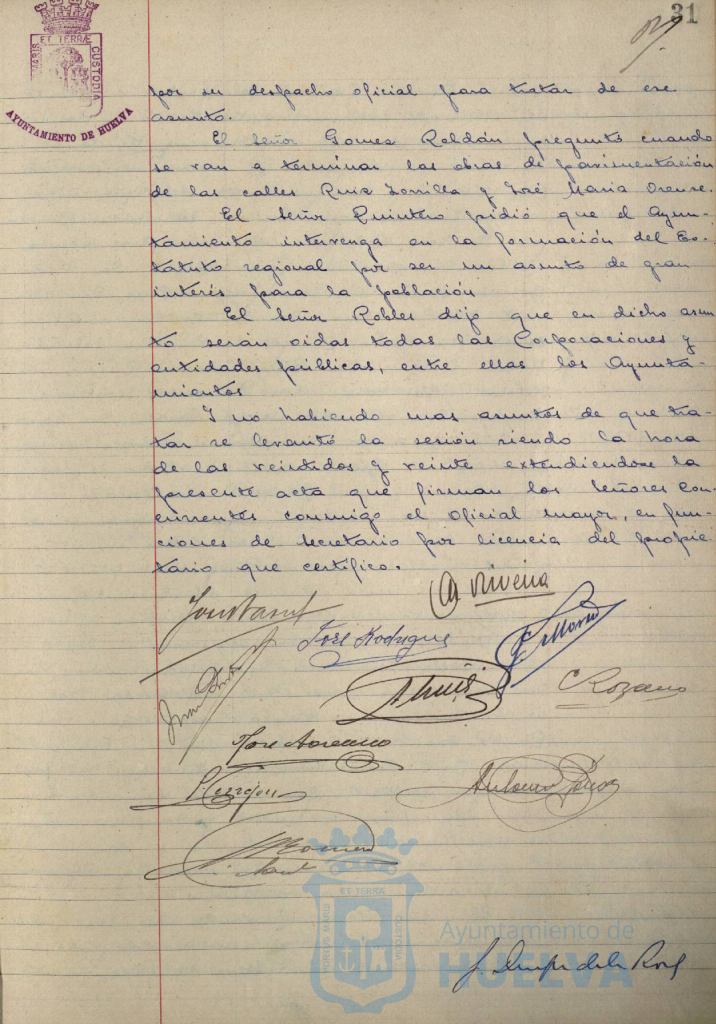 31
PORTUS MARIS ET TERRÆ CUSTODIA
AYUNTAMIENTO DE HUELVA
por su despacho oficial para tratar de ese
asunto.
El señor Gomez Roldán pregunto cuando
se van a terminar las obras de pavimentación
de las calles Ruiz Zorrilla y José Maria Orense.
El señor Quintero pidió que el Ayun-
tamiento intervenga en la formación del Es-
tatuto regional por ser un asunto de gran
interés para la población
El señor Robles dijo que en dicho asun
to serán oidas todas las Corporaciones y
entidades públicas, entre ellas los Ayunta-
mientos
Y no habiendo mas asuntos de que tra-
tar se levantó la sesión siendo la hora
de las veintidos y veinte extendiendose la
presente acta que firman los señores con-
currentes conmigo el oficial mayor, en fun-
ciones de secretario por licencia del propie-
tario que certifico.
José Rodriguez
C Rozano
PORTUS MARIS ET TERRÆ CUSTODIA
Ayuntamiento de
HUELVA